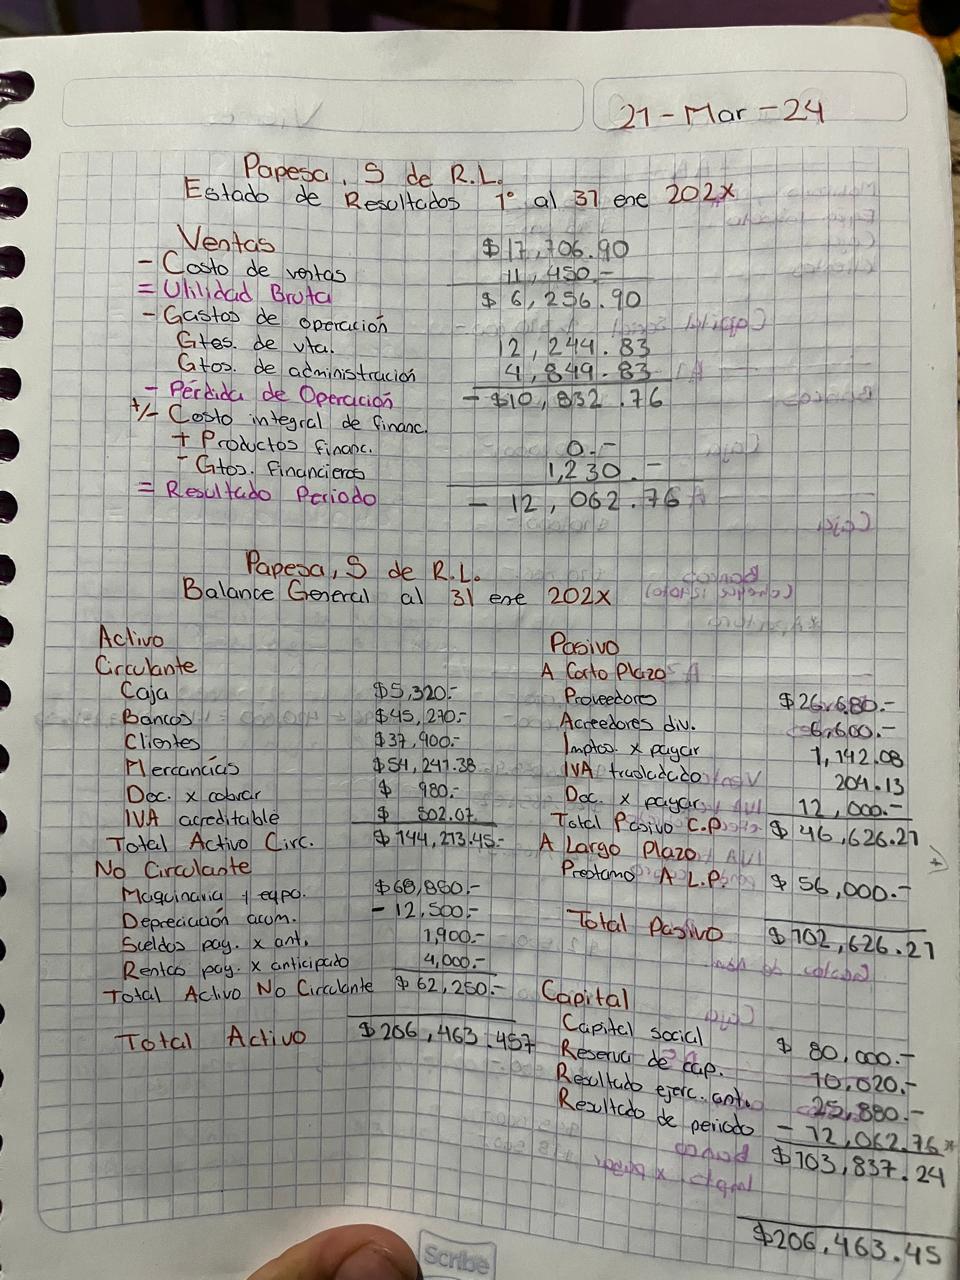 21-Mar-24
Papesa, S de R.L.
Estado de Resultados 1° al 31 ene 202x
Ventas $17,706.90
- Costo de ventas 11,450.-
= Utilidad Bruta $6,256.90
- Gastos de operación
Gtos. de vta. 12,244.83
Gtos. de administración 4,849.83
- Pérdida de Operación - $10,832.76
+/- Costo integral de financ.
+ Productos financ. 0.-
- Gtos. financieros 1,230.-
= Resultado Periodo - 12,062.76
Papesa, S de R.L.
Balance General al 31 ene 202x
Activo
Circulante
Caja $5,320.-
Bancos $45,270.-
Clientes $37,900.-
Mercancías $54,241.38
Doc. x cobrar $ 980.-
IVA acreditable $ 502.07
Total Activo Circ. $144,213.45.-
No Circulante
Maquinaria y eqpo. $68,850.-
Depreciación acum. - 12,500.-
Sueldos pag. x ant. 1,900.-
Rentas pag. x anticipado 4,000.-
Total Activo No Circulante $62,250.-
Total Activo $206,463.45
Pasivo
A Corto Plazo
Proveedores $26,680.-
Acreedores div. 6,600.-
Imptos. x pagar 1,142.08
IVA trasladado 204.13
Doc. x pagar 12,000.-
Total Pasivo C.P. $46,626.21
A Largo Plazo
Préstamo A L.P. $56,000.-
Total Pasivo $102,626.21
Capital
Capital social $80,000.-
Reserva de cap. 10,020.-
Resultado ejerc. ant. 25,880.-
Resultado de periodo - 12,062.76*
$103,837.24
$206,463.45
Scribe